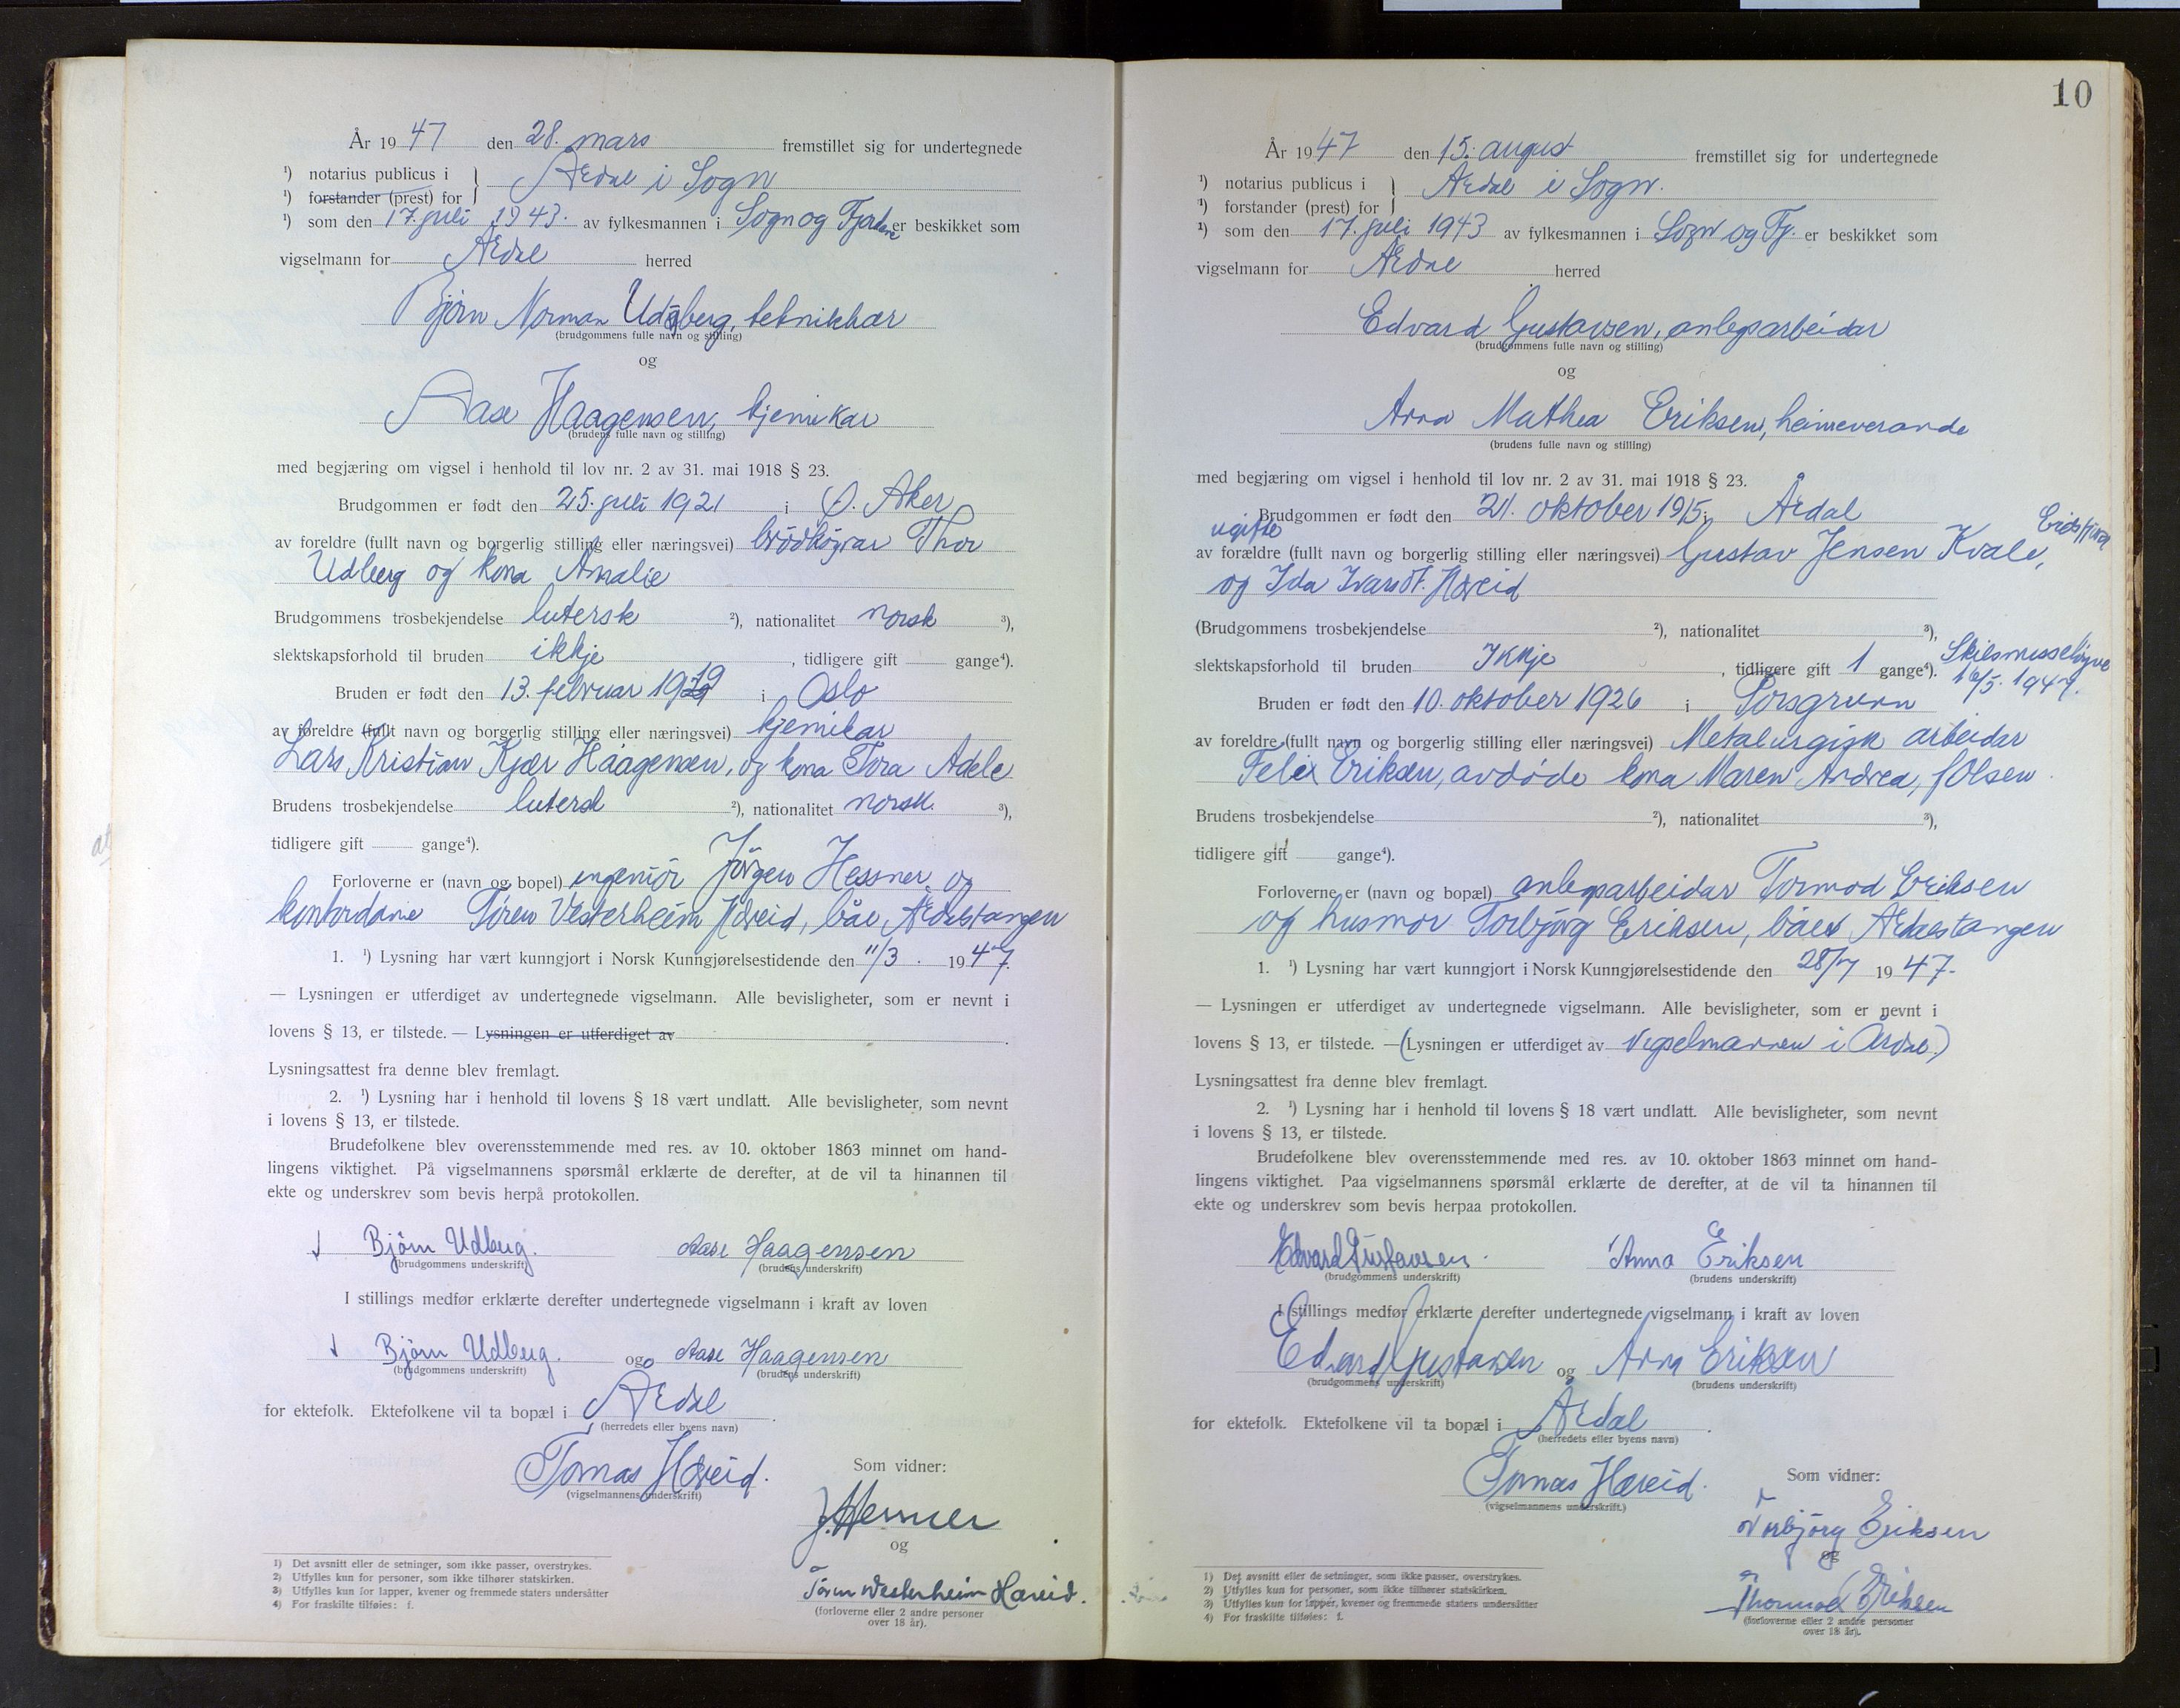 År 1947 den 28. mars fremstillet sig for undertegnede
¹) notarius publicus i } Årdal i Sogn
¹) forstander (prest) for
¹) som den 17. juli 1943. av fylkesmannen i Sogn og Fjordane er beskikket som
vigselmann for Årdal herred
Bjørn Norman Udberg, teknikkar
(brudgommens fulle navn og stilling)
og
Aase Haagensen, kjemikar
(brudens fulle navn og stilling)
med begjæring om vigsel i henhold til lov nr. 2 av 31. mai 1918 § 23.
Brudgommen er født den 25. juli 1921 i Ø. Aker
av foreldre (fullt navn og borgerlig stilling eller næringsvei) Thor
Udberg og kona Amalie
Brudgommens trosbekjendelse lutersk ²), nationalitet norsk ³),
slektskapsforhold til bruden ikkje, tidligere gift gange⁴).
Bruden er født den 13. februar 1919 i Oslo
av foreldre (fullt navn og borgerlig stilling eller næringsvei) kjemikar
Lars Kristian Kjær Haagensen, og kona Tora Adele
Brudens trosbekjendelse lutersk ²), nationalitet norsk. ³),
tidligere gift gange⁴).
Forloverne er (navn og bopel) ingeniør Jörgen Hessner og
kontordame Tören Vesterheim Hæreid, båe Årdalstangen
1. ¹) Lysning har vært kunngjort i Norsk Kunngjørelsestidende den 11/3. 1947.
— Lysningen er utferdiget av undertegnede vigselmann. Alle bevisligheter, som er nevnt i
lovens § 13, er tilstede. — Lysningen er utferdiget av .
Lysningsattest fra denne blev fremlagt.
2. ¹) Lysning har i henhold til lovens § 18 vært undlatt. Alle bevisligheter, som nevnt
i lovens § 13, er tilstede.
Brudefolkene blev overensstemmende med res. av 10. oktober 1863 minnet om hand-
lingens viktighet. På vigselmannens spørsmål erklærte de derefter, at de vil ta hinannen til
ekte og underskrev som bevis herpå protokollen.
Björn Udberg. Aase Haagensen
(brudgommens underskrift) (brudens underskrift)
I stillings medfør erklærte derefter undertegnede vigselmann i kraft av loven
Björn Udberg. og Aase Haagensen
(brudgommens underskrift) (brudens underskrift)
for ektefolk. Ektefolkene vil ta bopæl i Årdal .
(herredets eller byens navn)
Tomas Hæreid.
(vigselmannens underskrift)
Som vidner:
J. Hessner
og
Tören Westerheim Hæreid.
(forloverne eller 2 andre personer
over 18 år).
1) Det avsnitt eller de setninger, som ikke passer, overstrykes.
2) Utfylles kun for personer, som ikke tilhører statskirken.
3) Utfylles kun for lapper, kvener og fremmede staters undersåtter
4) For fraskilte tilføies: f.
10
År 1947 den 15. august fremstillet sig for undertegnede
¹) notarius publicus i } Årdal i Sogn.
¹) forstander (prest) for
¹) som den 17. juli 1943 av fylkesmannen i Sogn og Fj. er beskikket som
vigselmann for Årdal herred
Edvard Gustavsen, anlegsarbeidar
(brudgommens fulle navn og stilling)
og
Anna Mathea Eriksen, heimeverande
(brudens fulle navn og stilling)
med begjæring om vigsel i henhold til lov nr. 2 av 31. mai 1918 § 23.
Brudgommen er født den 21. oktober 1915 i Årdal
ugifte
av forældre (fullt navn og borgerlig stilling eller næringsvei) Gustav Jensen Kvale,
og Ida Ivarsdt. Hæreid
(Brudgommens trosbekjendelse ²), nationalitet ³),
slektskapsforhold til bruden Ikkje, tidligere gift 1 gange⁴). Skilsmisseløyve
16/5. 1947.
Bruden er født den 10. oktober 1926 i Porsgrunn
av foreldre (fullt navn og borgerlig stilling eller næringsvei) Metalurgisk arbeidar
Felix Eriksen, avdøde kona Maren Andrea, f. Olsen
Brudens trosbekjendelse ²), nationalitet ³),
tidligere gift gange⁴).
Forloverne er (navn og bopæl) anlegsarbeidar Tormod Eriksen
og husmor Torbjörg Eriksen, båe Årdalstangen
1. ¹) Lysning har vært kunngjort i Norsk Kunngjørelsestidende den 28/7 1947.
— Lysningen er utferdiget av undertegnede vigselmann. Alle bevisligheter, som er nevnt i
lovens § 13, er tilstede. — (Lysningen er utferdiget av Vigselmannen i Årdal.)
Lysningsattest fra denne blev fremlagt.
2. ¹) Lysning har i henhold til lovens § 18 vært undlatt. Alle bevisligheter, som nevnt
i lovens § 13, er tilstede.
Brudefolkene blev overensstemmende med res. av 10. oktober 1863 minnet om hand-
lingens viktighet. Paa vigselmannens spørsmål erklærte de derefter, at de vil ta hinannen til
ekte og underskrev som bevis herpaa protokollen.
Edvard Gustavsen. Anna Eriksen
(brudgommens underskrift) (brudens underskrift)
I stillings medfør erklærte derefter undertegnede vigselmann i kraft av loven
Edvard Gustavsen og Anna Eriksen
(brudgommens underskrift) (brudens underskrift)
for ektefolk. Ektefolkene vil ta bopæl i Årdal .
(herredets eller byens navn)
Tomas Hæreid.
(vigselmannens underskrift.)
Som vidner:
Torbjörg Eriksen
og
Thormod Eriksen
(forloverne eller 2 andre personer
over 18 år).
1) Det avsnitt eller de setninger, som ikke passer, overstrykes.
2) Utfylles kun for personer, som ikke tilhører statskirken.
3) Utfylles kun for lapper, kvener og fremmede staters undersåtter
4) For fraskilte tilføies: f.